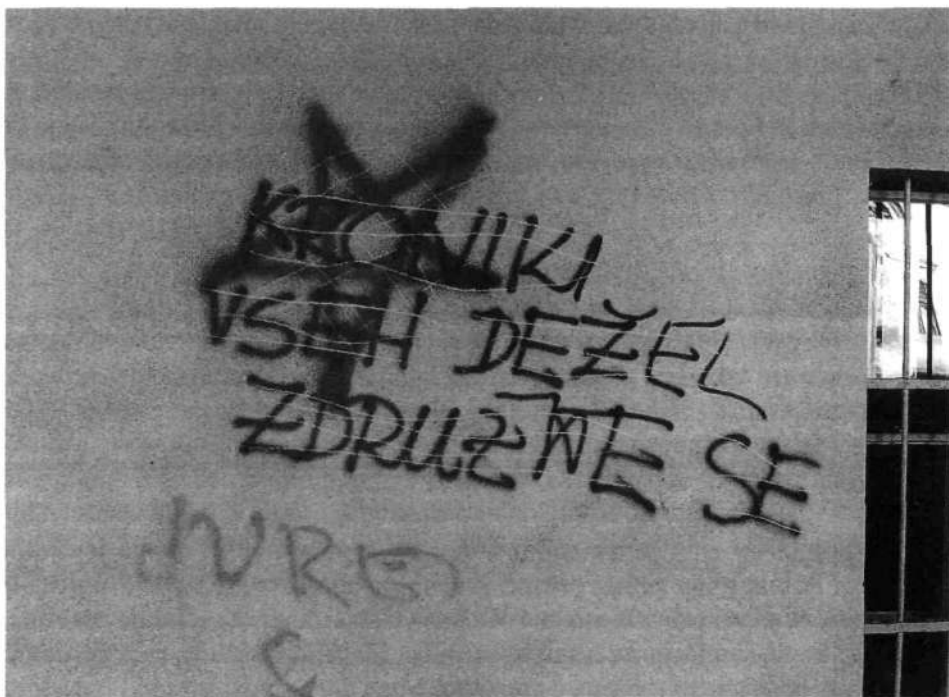 KRONIKI
VSEH DEŽEL
ZDRUŽITE SE
JURE